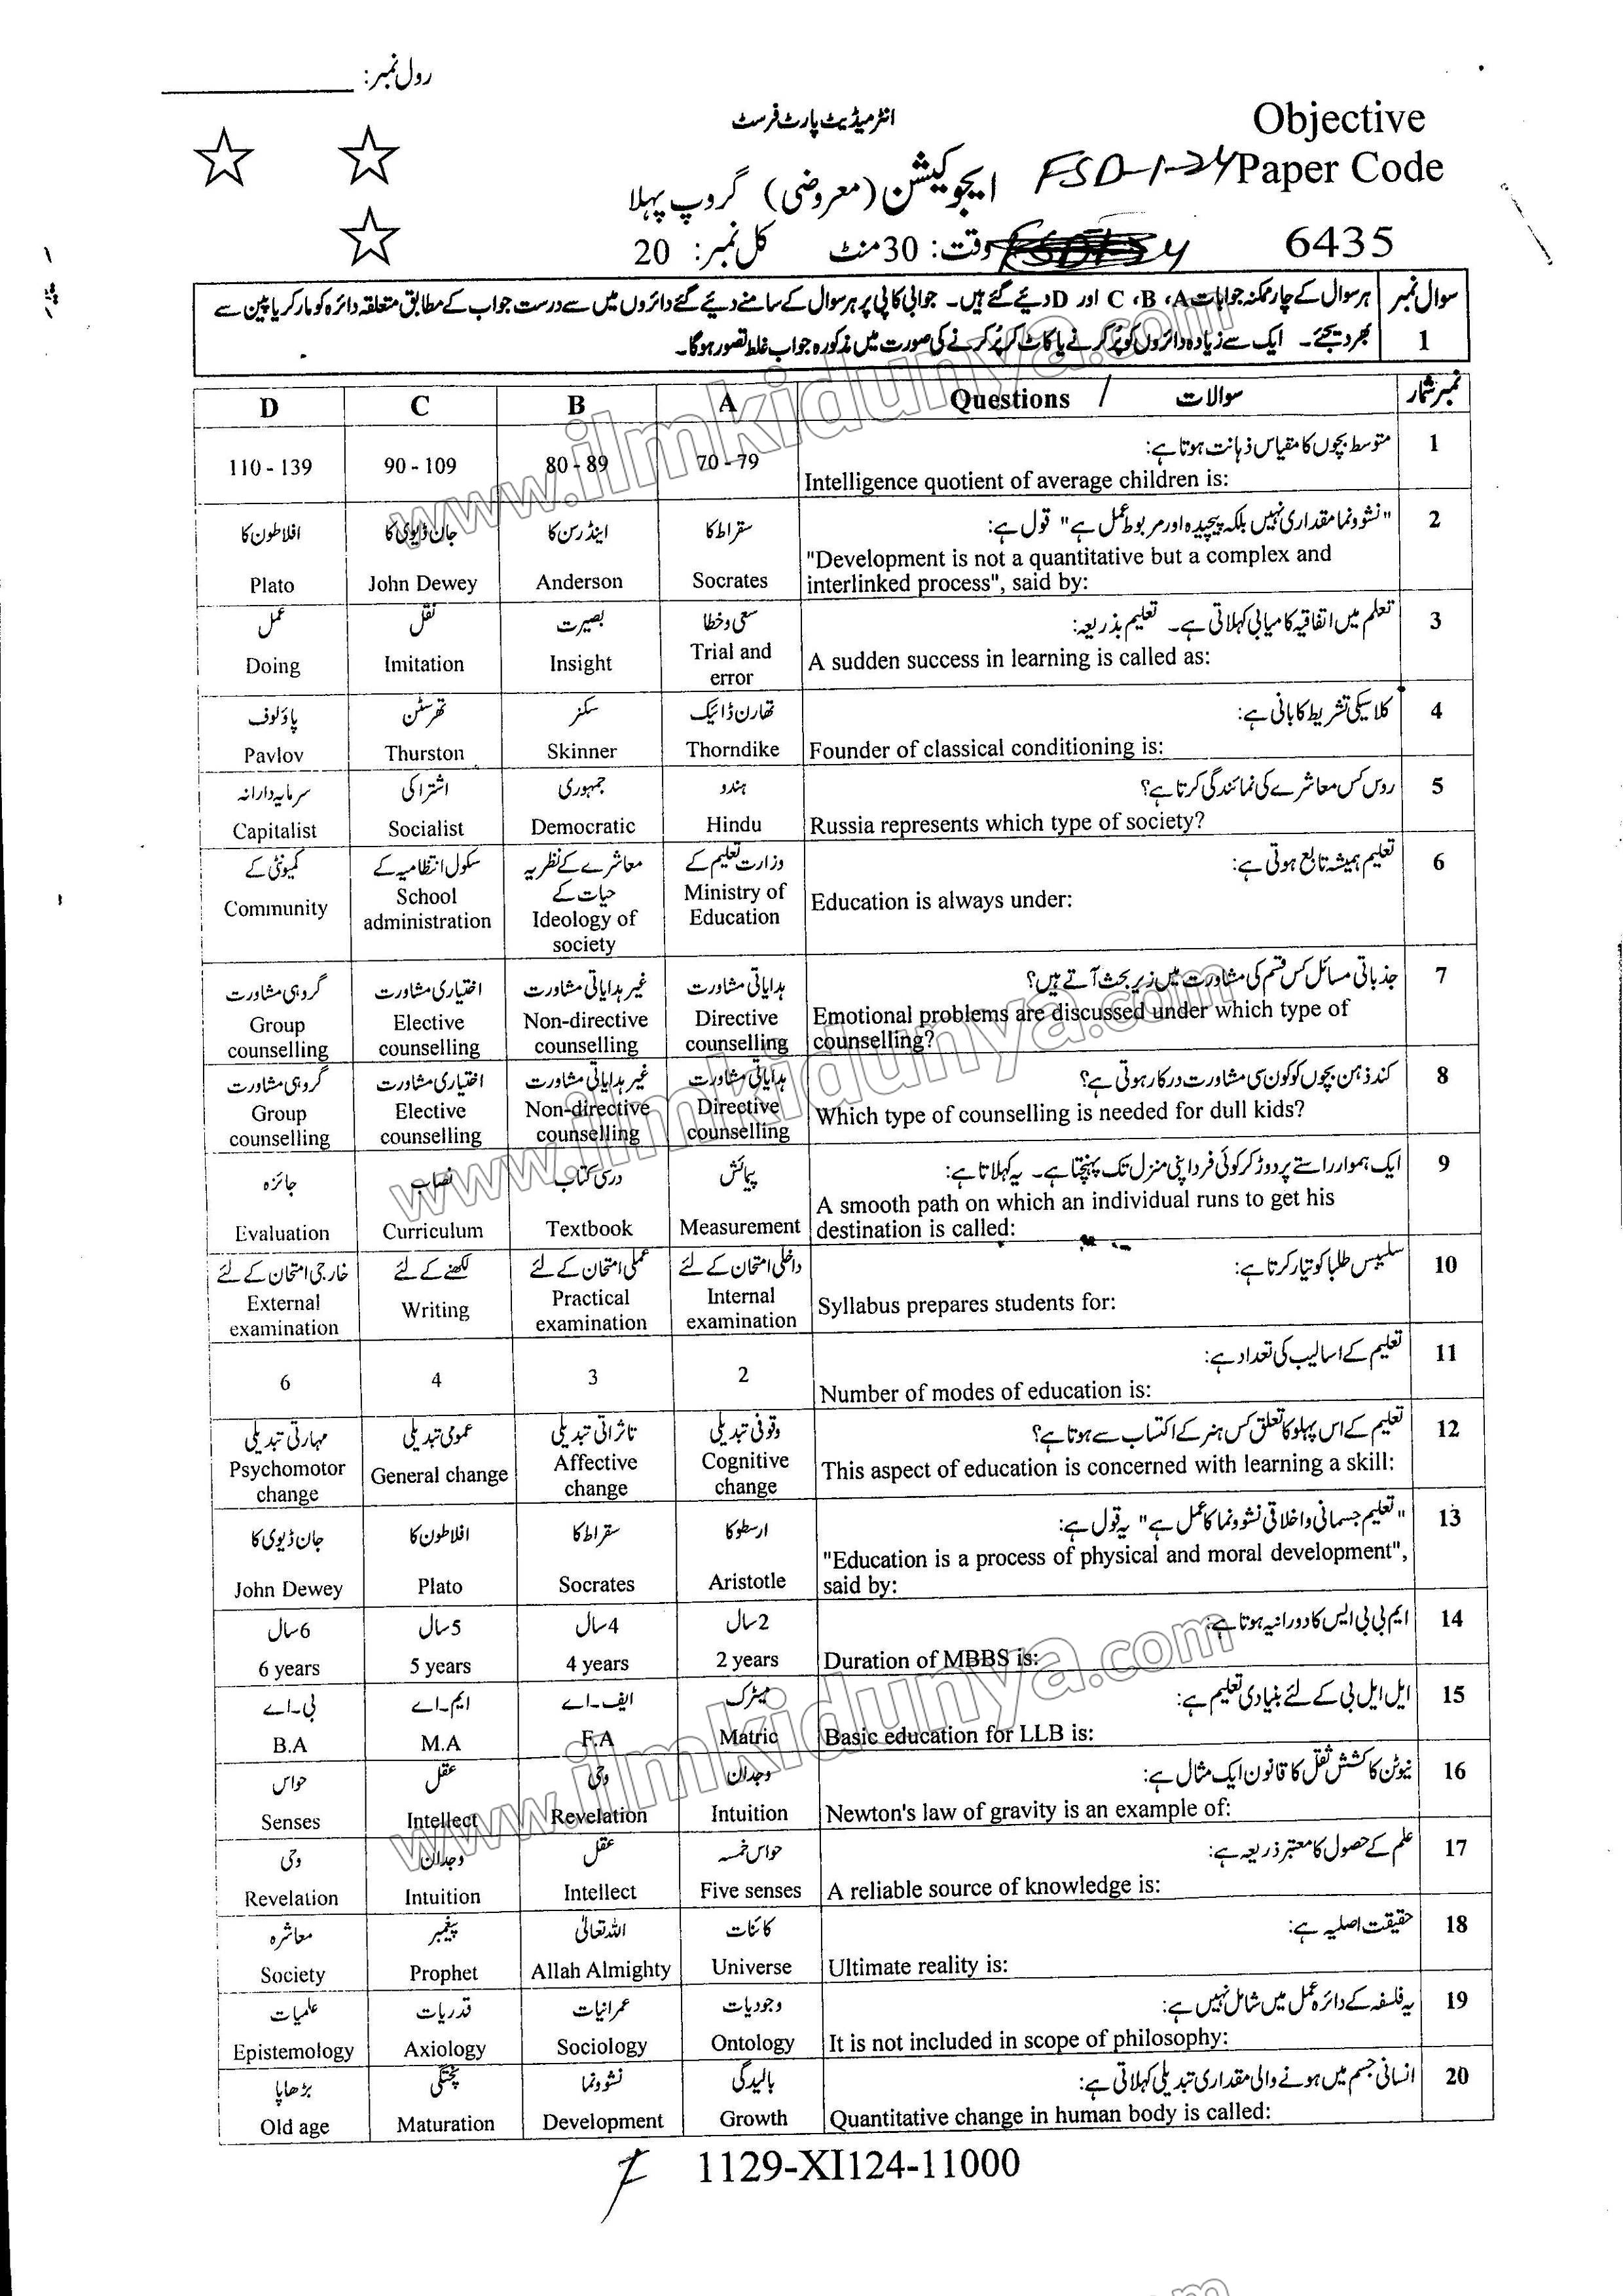 رول نمبر:
انٹرمیڈیٹ پارٹ فرسٹ
Objective
Paper Code
ایجوکیشن (معروضی) گروپ پہلا
FSD-1-24
6435
وقت: 30 منٹ کل نمبر: 20
سوال نمبر 1
ہر سوال کے چار ممکنہ جوابات A، B، C اور D دیئے گئے ہیں۔ جوابی کاپی پر ہر سوال کے سامنے دیئے گئے دائروں میں سے درست جواب کے مطابق متعلقہ دائرہ کو مارکر یا پین سے
بھر دیجئے۔ ایک سے زیادہ دائروں کو پُر کرنے یا کاٹ کر پُر کرنے کی صورت میں مذکورہ جواب غلط تصور ہوگا۔
نمبر شمار سوالات / Questions A B C D
1 متوسط بچوں کا مقیاس ذہانت ہوتا ہے:
Intelligence quotient of average children is:
70 - 79 80 - 89 90 - 109 110 - 139
2 "نشوونما مقداری نہیں بلکہ پیچیدہ اور مربوط عمل ہے" قول ہے:
"Development is not a quantitative but a complex and
interlinked process", said by:
سقراط کا اینڈرسن کا جان ڈیوی کا افلاطون کا
Socrates Anderson John Dewey Plato
3 تعلم میں اتفاقیہ کامیابی کہلاتی ہے۔ تعلیم بذریعہ:
A sudden success in learning is called as:
سعی و خطا بصیرت نقل عمل
Trial and error Insight Imitation Doing
4 کلاسیکی تشریط کا بانی ہے:
Founder of classical conditioning is:
تھارن ڈائیک سکنر تھرسٹن پاؤلوف
Thorndike Skinner Thurston Pavlov
5 روس کس معاشرے کی نمائندگی کرتا ہے؟
Russia represents which type of society?
ہندو جمہوری اشتراکی سرمایہ دارانہ
Hindu Democratic Socialist Capitalist
6 تعلیم ہمیشہ تابع ہوتی ہے:
Education is always under:
وزارت تعلیم کے معاشرے کے نظریہ حیات کے سکول انتظامیہ کے کمیونٹی کے
Ministry of Education Ideology of society School administration Community
7 جذباتی مسائل کس قسم کی مشاورت میں زیر بحث آتے ہیں؟
Emotional problems are discussed under which type of
counselling?
ہدایاتی مشاورت غیر ہدایاتی مشاورت اختیاری مشاورت گروہی مشاورت
Directive counselling Non-directive counselling Elective counselling Group counselling
8 کند ذہن بچوں کو کون سی مشاورت درکار ہوتی ہے؟
Which type of counselling is needed for dull kids?
ہدایاتی مشاورت غیر ہدایاتی مشاورت اختیاری مشاورت گروہی مشاورت
Directive counselling Non-directive counselling Elective counselling Group counselling
9 ایک ہموار راستے پر دوڑ کر کوئی فرد اپنی منزل تک پہنچتا ہے۔ یہ کہلاتا ہے:
A smooth path on which an individual runs to get his
destination is called:
پیمائش درسی کتاب نصاب جائزہ
Measurement Textbook Curriculum Evaluation
10 سلیبس طلبا کو تیار کرتا ہے:
Syllabus prepares students for:
داخلی امتحان کے لئے عملی امتحان کے لئے لکھنے کے لئے خارجی امتحان کے لئے
Internal examination Practical examination Writing External examination
11 تعلیم کے اسالیب کی تعداد ہے:
Number of modes of education is:
2 3 4 6
12 تعلیم کے اس پہلو کا تعلق کس ہنر کے اکتساب سے ہوتا ہے؟
This aspect of education is concerned with learning a skill:
وقوفی تبدیلی تاثراتی تبدیلی عمومی تبدیلی مہارتی تبدیلی
Cognitive change Affective change General change Psychomotor change
13 "تعلیم جسمانی و اخلاقی نشوونما کا عمل ہے" یہ قول ہے:
"Education is a process of physical and moral development",
said by:
ارسطو کا سقراط کا افلاطون کا جان ڈیوی کا
Aristotle Socrates Plato John Dewey
14 ایم بی بی ایس کا دورانیہ ہوتا ہے:
Duration of MBBS is:
2 سال 4 سال 5 سال 6 سال
2 years 4 years 5 years 6 years
15 ایل ایل بی کے لئے بنیادی تعلیم ہے:
Basic education for LLB is:
میٹرک ایف۔اے ایم۔اے بی۔اے
Matric F.A M.A B.A
16 نیوٹن کا کشش ثقل کا قانون ایک مثال ہے:
Newton's law of gravity is an example of:
وجدان وحی عقل حواس
Intuition Revelation Intellect Senses
17 علم کے حصول کا معتبر ذریعہ ہے:
A reliable source of knowledge is:
حواس خمسہ عقل وجدان وحی
Five senses Intellect Intuition Revelation
18 حقیقت اصلیہ ہے:
Ultimate reality is:
کائنات اللہ تعالیٰ پیغمبر معاشرہ
Universe Allah Almighty Prophet Society
19 یہ فلسفہ کے دائرہ عمل میں شامل نہیں ہے:
It is not included in scope of philosophy:
وجودیات عمرانیات قدریات علمیات
Ontology Sociology Axiology Epistemology
20 انسانی جسم میں ہونے والی مقداری تبدیلی کہلاتی ہے:
Quantitative change in human body is called:
بالیدگی نشوونما پختگی بڑھاپا
Growth Development Maturation Old age
1129-XI124-11000
www.ilmkidunya.com
www.ilmkidunya.com
www.ilmkidunya.com